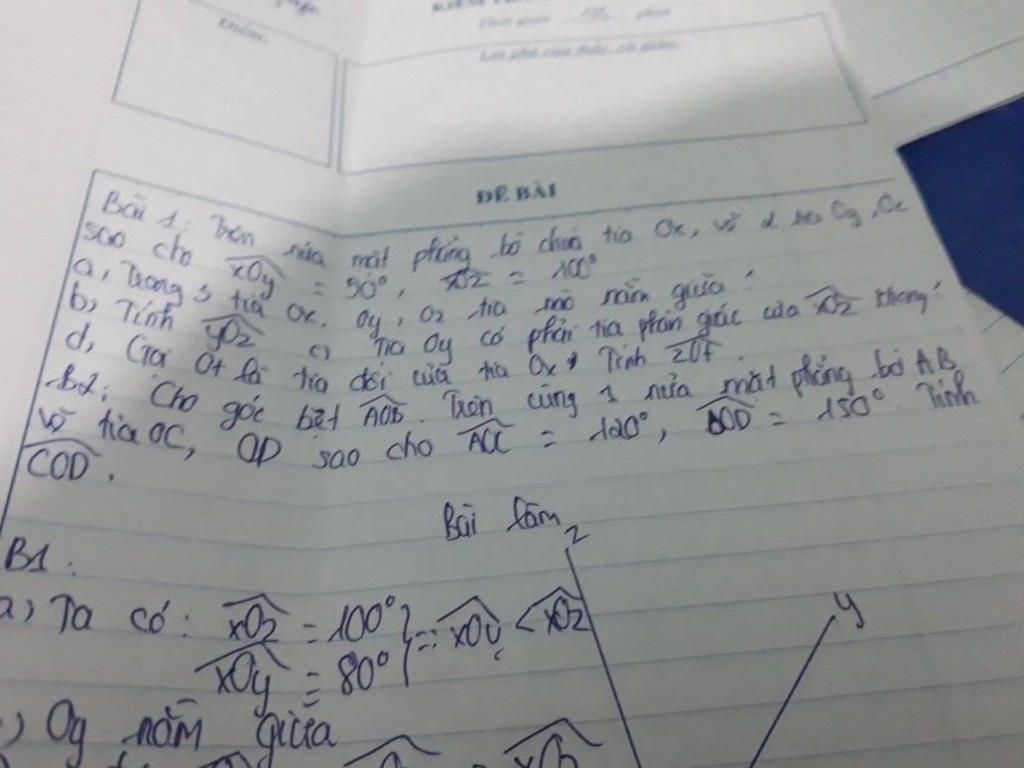 Điểm.
Thời gian phút
Lời phê của thầy, cô giáo.
ĐỀ BÀI
Bài 1: Trên nửa mặt phẳng bờ chứa tia Ox, vẽ 2 tia Oy, Oz
sao cho xOy = 50°, xOz = 100°
a, Trong 3 tia Ox, Oy, Oz tia nào nằm giữa?
b, Tính yOz c) Tia Oy có phải tia phân giác của xOz không?
d, Gọi Ot là tia đối của tia Ox, Tính zOt.
B2: Cho góc bẹt AOB. Trên cùng 1 nửa mặt phẳng bờ AB
vẽ tia OC, OD sao cho AOC = 120°, BOD = 150°. Tính
COD.
Bài làm
z
B1:
y
a) Ta có: xOz = 100° } => xOy < xOz
xOy = 80°
) Oy nằm giữa